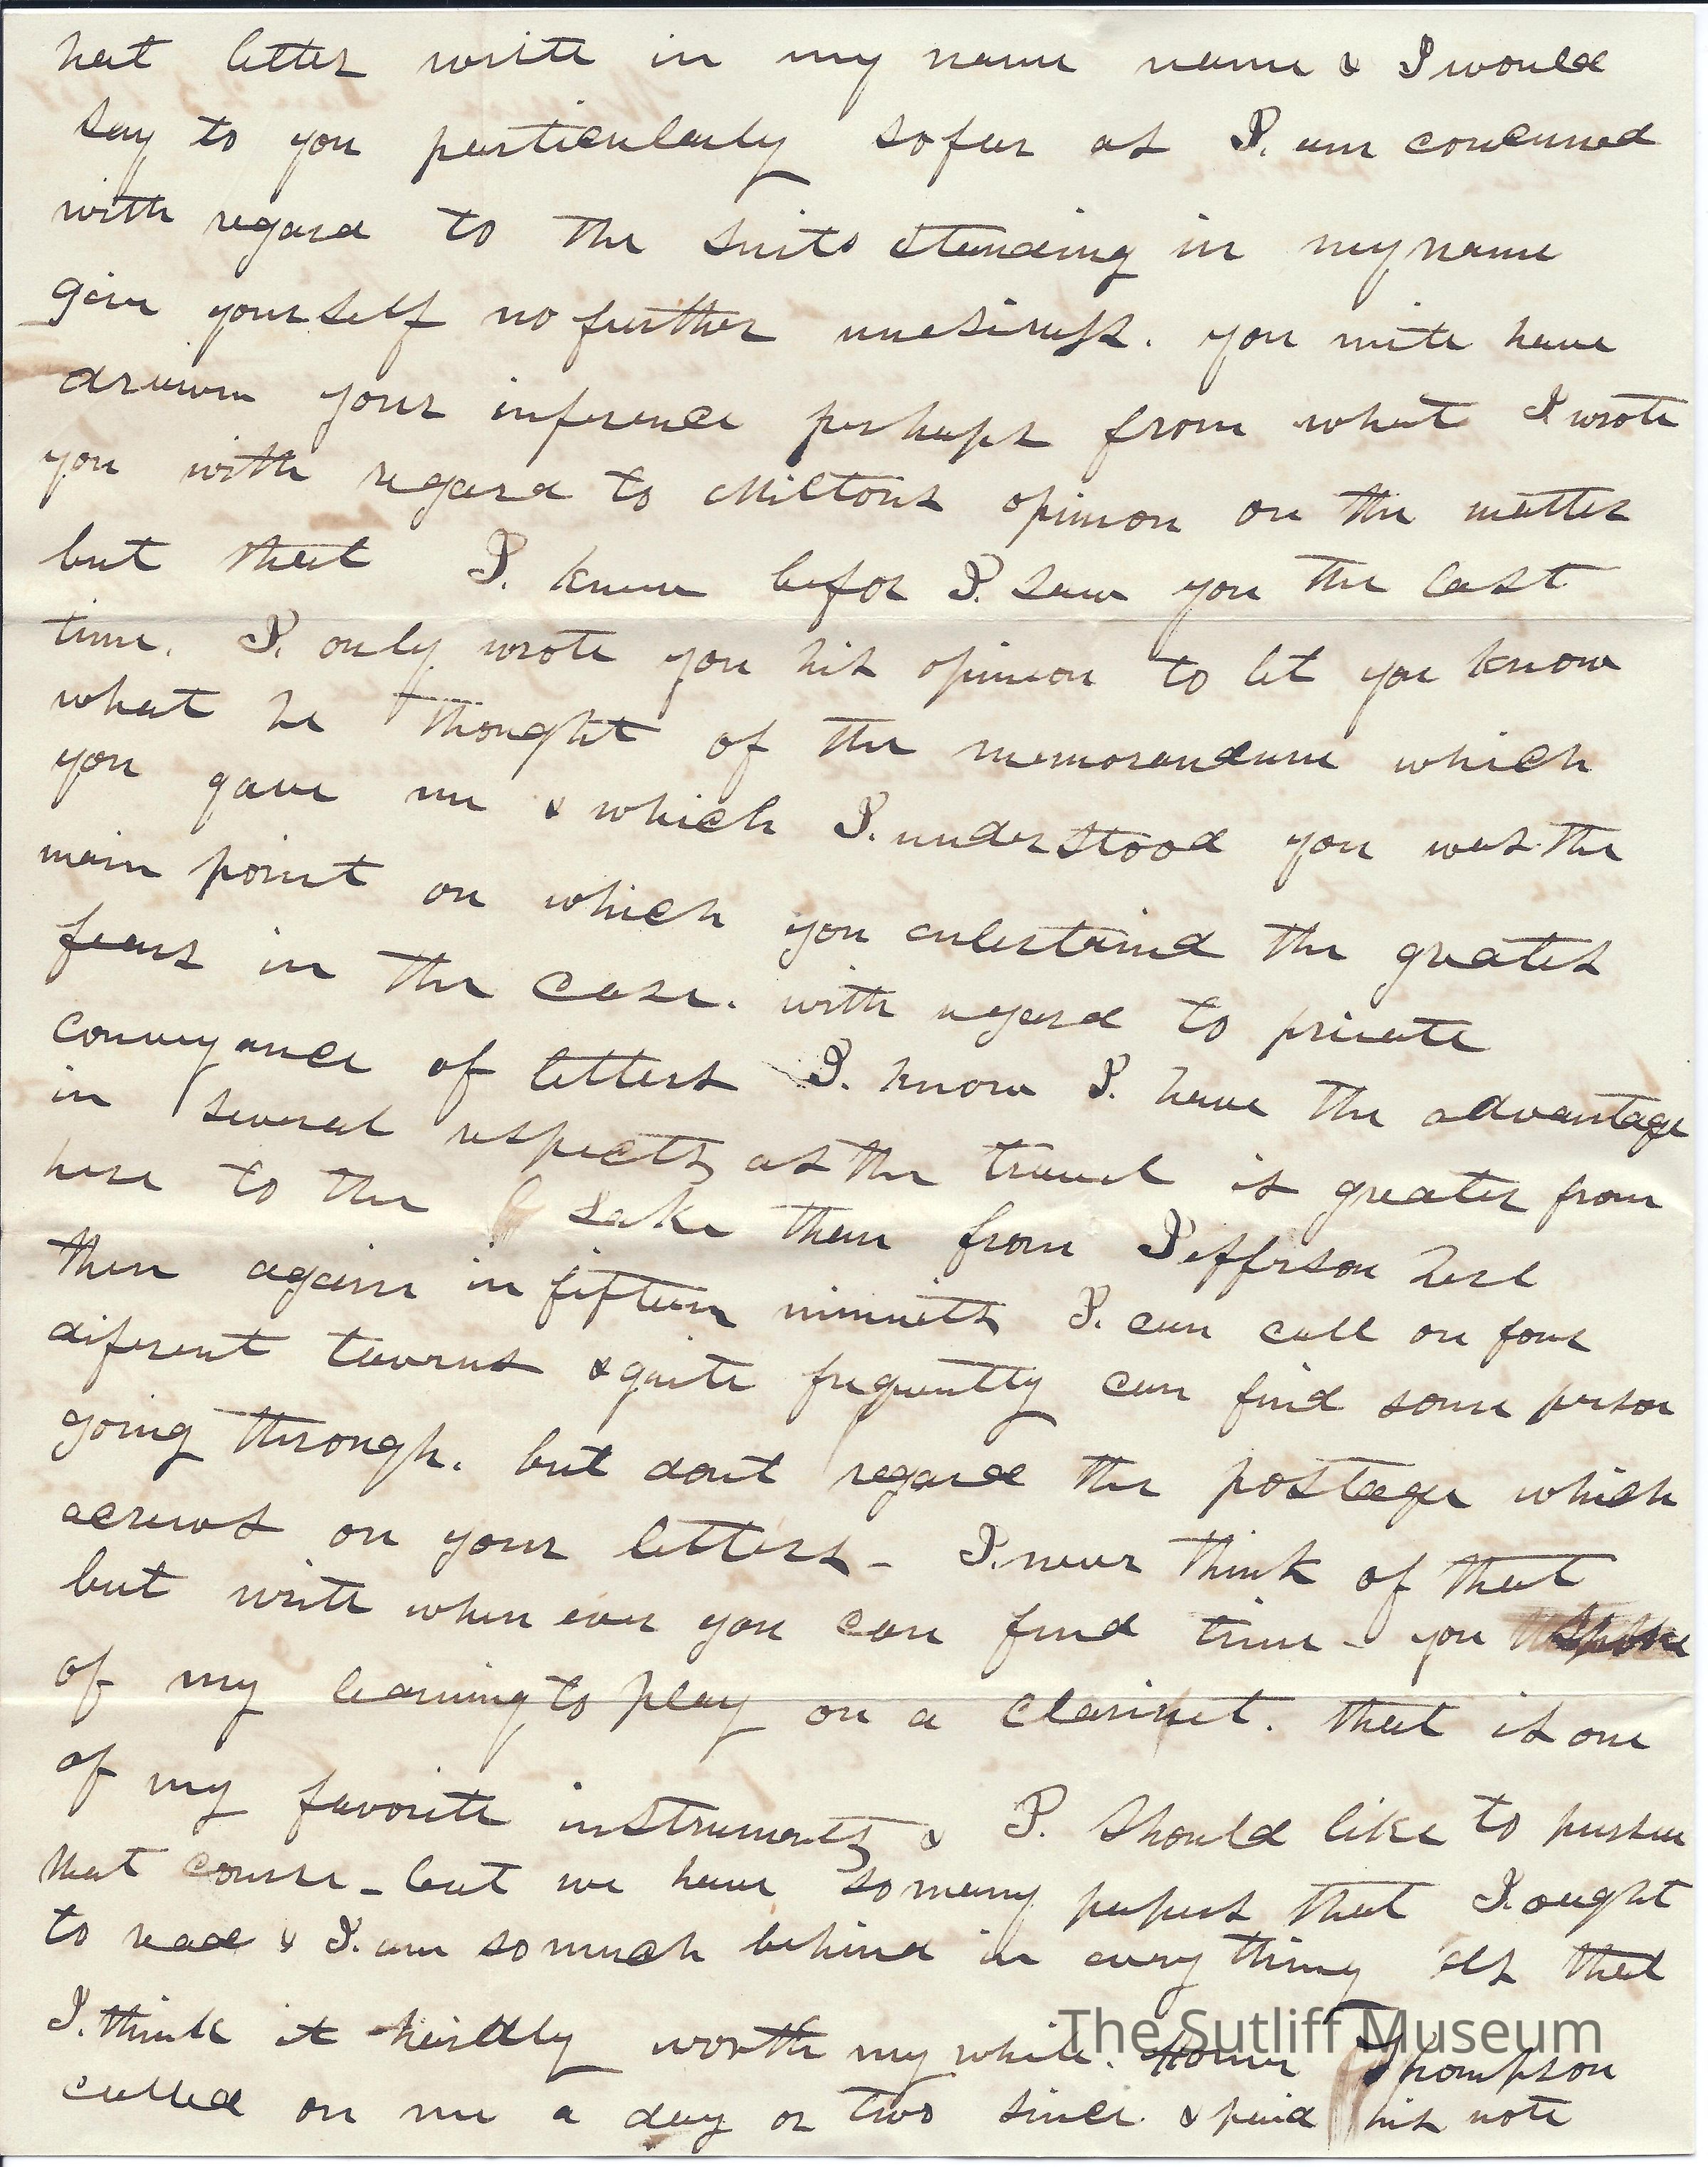 hat letter write in my name name & I would
say to you particularly so far as I. am concerned
with regard to the suits standing in my name
give yourself no further unesiness. you mite have
drawn your inference perhaps from what I wrote
you with regard to Miltons opinion on the matter
but that I. knew befor I. saw you the last
time. I. only wrote you his opinion to let you know
what he thought of the memorandum which
you gave me & which I. understood you was the
main point on which you entertaind the greates
fears in the case. with regard to private
conveyance of letters I. know I. have the advantage
in several respects as the travel is greater from
here to the Lake than from Jefferson
then again in fifteen minnets I. can call on four
diferent taverns & quite frequently can find some person
going through. but dont regard the postage which
acrews on your letters - I. never think of that
but write when ever you can find time - you spoke
of my learning to play on a Clarinet. that is one
of my favorite instruments & I. should like to pursue
that course - but we have so many papers that I. ought
to read & I. am so much behind in every thing els that
I. think it hardly worth my while. Homer Thompson
called on me a day or two since & paid his note
The Sutliff Museum